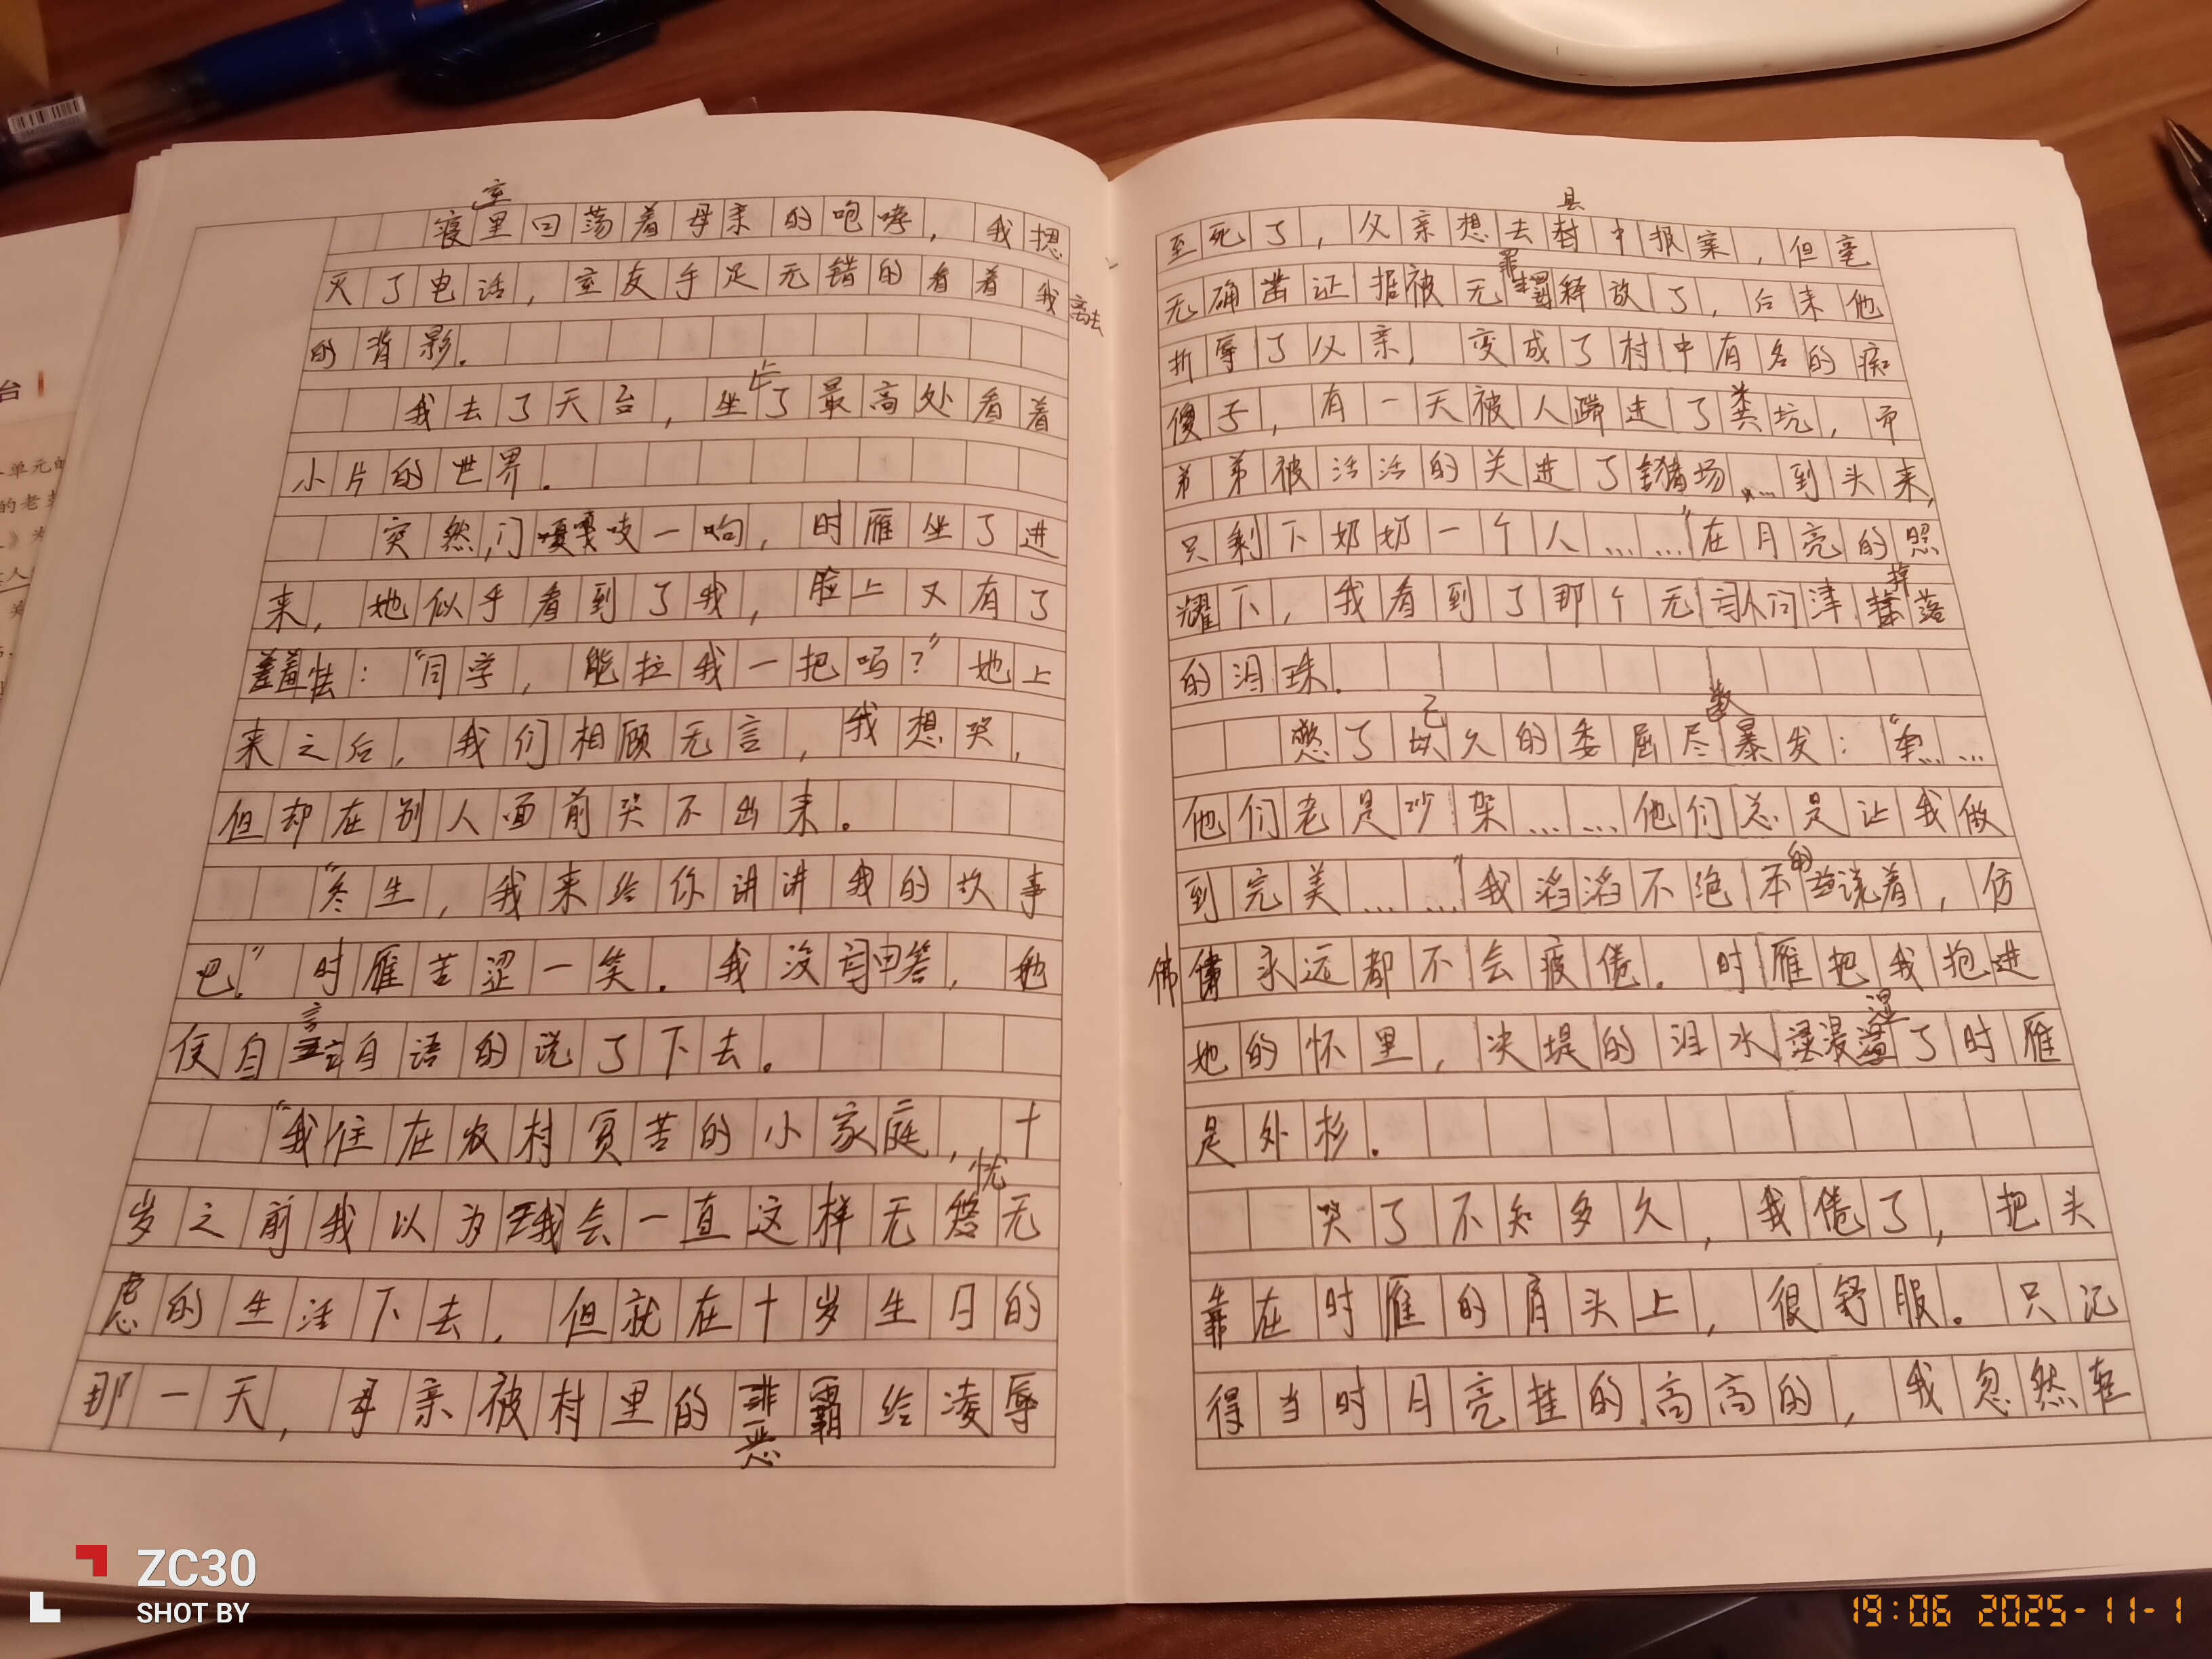 寝室里回荡着母亲的咆哮，我摁
灭了电话，室友手足无错的看着我离去
的背影。
我去了天台，坐上了最高处看着
小片的世界。
突然，门嘎吱一响，时雁坐了进
来，她似乎看到了我，脸上又有了
羞怯：“同学，能拉我一把吗？”她上
来之后，我们相顾无言，我想哭，
但却在别人面前哭不出来。
“冬生，我来给你讲讲我的故事
吧。”时雁苦涩一笑。我没有回答，她
便自言自语的说了下去。
“我住在农村贫苦的小家庭，十
岁之前我以为我会一直这样无忧无
虑的生活下去，但就在十岁生日的
那一天，母亲被村里的恶霸给凌辱
至死了，父亲想去县中报案，但毫
无确凿证据被无罪释放了，后来他
折辱了父亲，变成了村中有名的痴
傻子，有一天被人踹进了粪坑，而
弟弟被活活的关进了猪场……到头来，
只剩下奶奶一个人……”在月亮的照
耀下，我看到了那个无人问津掉落
的泪珠。
憋了已久的委屈尽数暴发：“……
他们老是吵架……他们总是让我做
到完美……”我滔滔不绝的说着，仿
佛永远都不会疲倦。时雁把我抱进
她的怀里，决堤的泪水浸湿了时雁
是外衫。
哭了不知多久，我倦了，把头
靠在时雁的肩头上，很舒服。只记
得当时月亮挂的高高的，我忽然轻
台
单元的
的老
ZC30
SHOT BY
19:06 2025-11-1